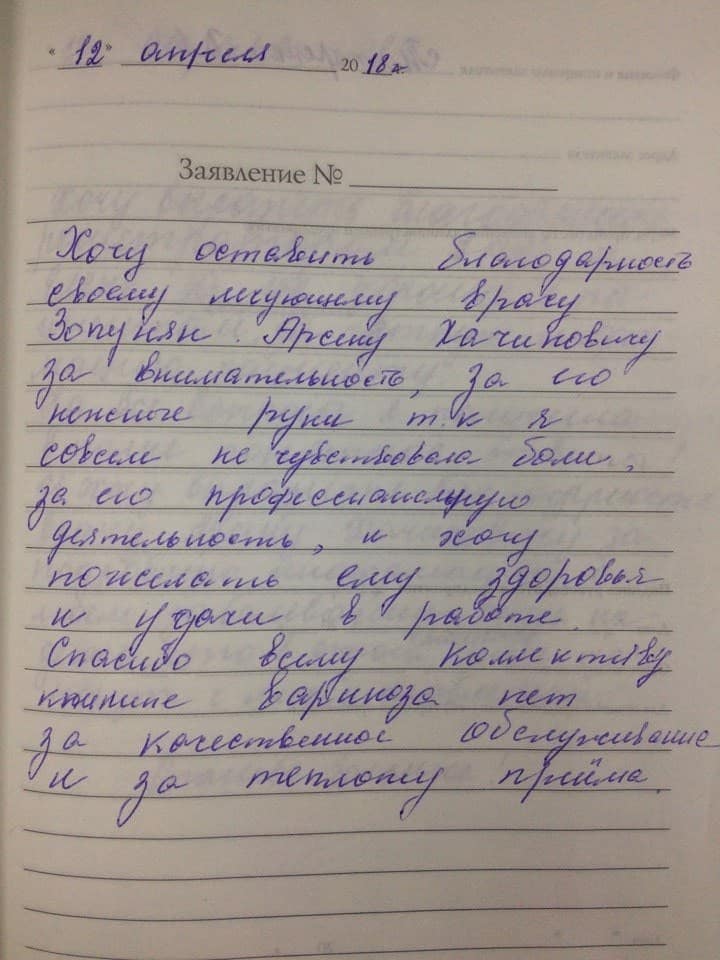 "12" апреля 2018 г.
Заявление №
Хочу оставить благодарность
своему лечующему врачу
Зопунян Арсену Хачиковичу
за внимательность, за его
нежные руки т.к я
совсем не чувствовала боли,
за его профессиональную
деятельность, и хочу
пожелать ему здоровья
и удачи в работе.
Спасибо всему коллективу
клинике Варикоза нет
за качественное обслуживание
и за теплоту приёма.